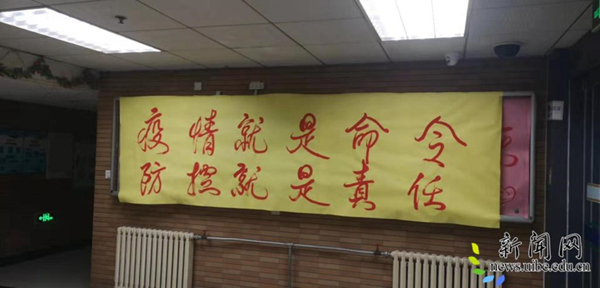 疫情就是命令
防控就是责任
新闻网
news.uibe.edu.cn